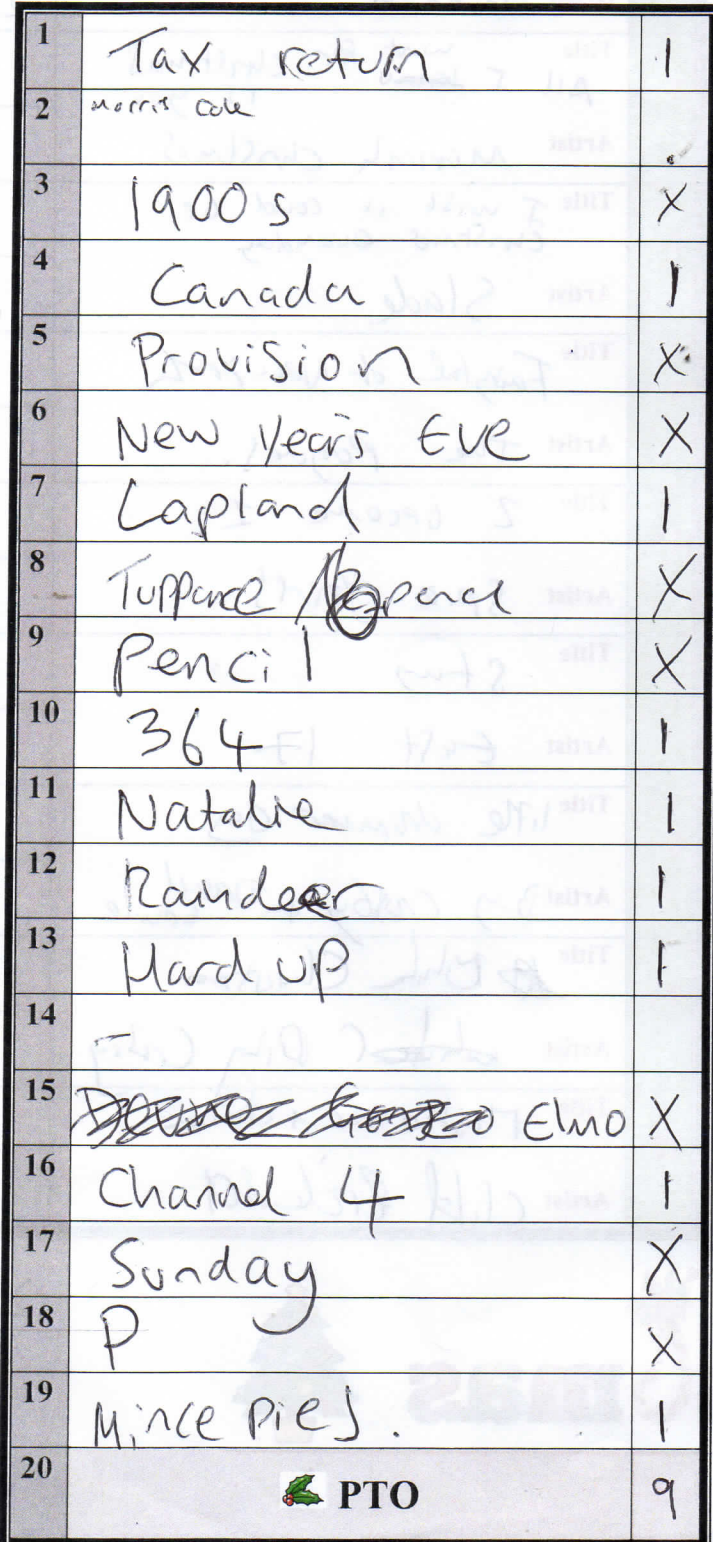 1 Tax return 1
2 Morris Cole
3 1900s X
4 Canada 1
5 Provision X
6 New Years Eve X
7 Lapland 1
8 Tuppance / Bread X
9 Pencil X
10 364 1
11 Natalie 1
12 Raindeer 1
13 Hard up 1
14
15 Elmo X
16 Channel 4 1
17 Sunday X
18 P X
19 Mince pies. 1
20 PTO 9